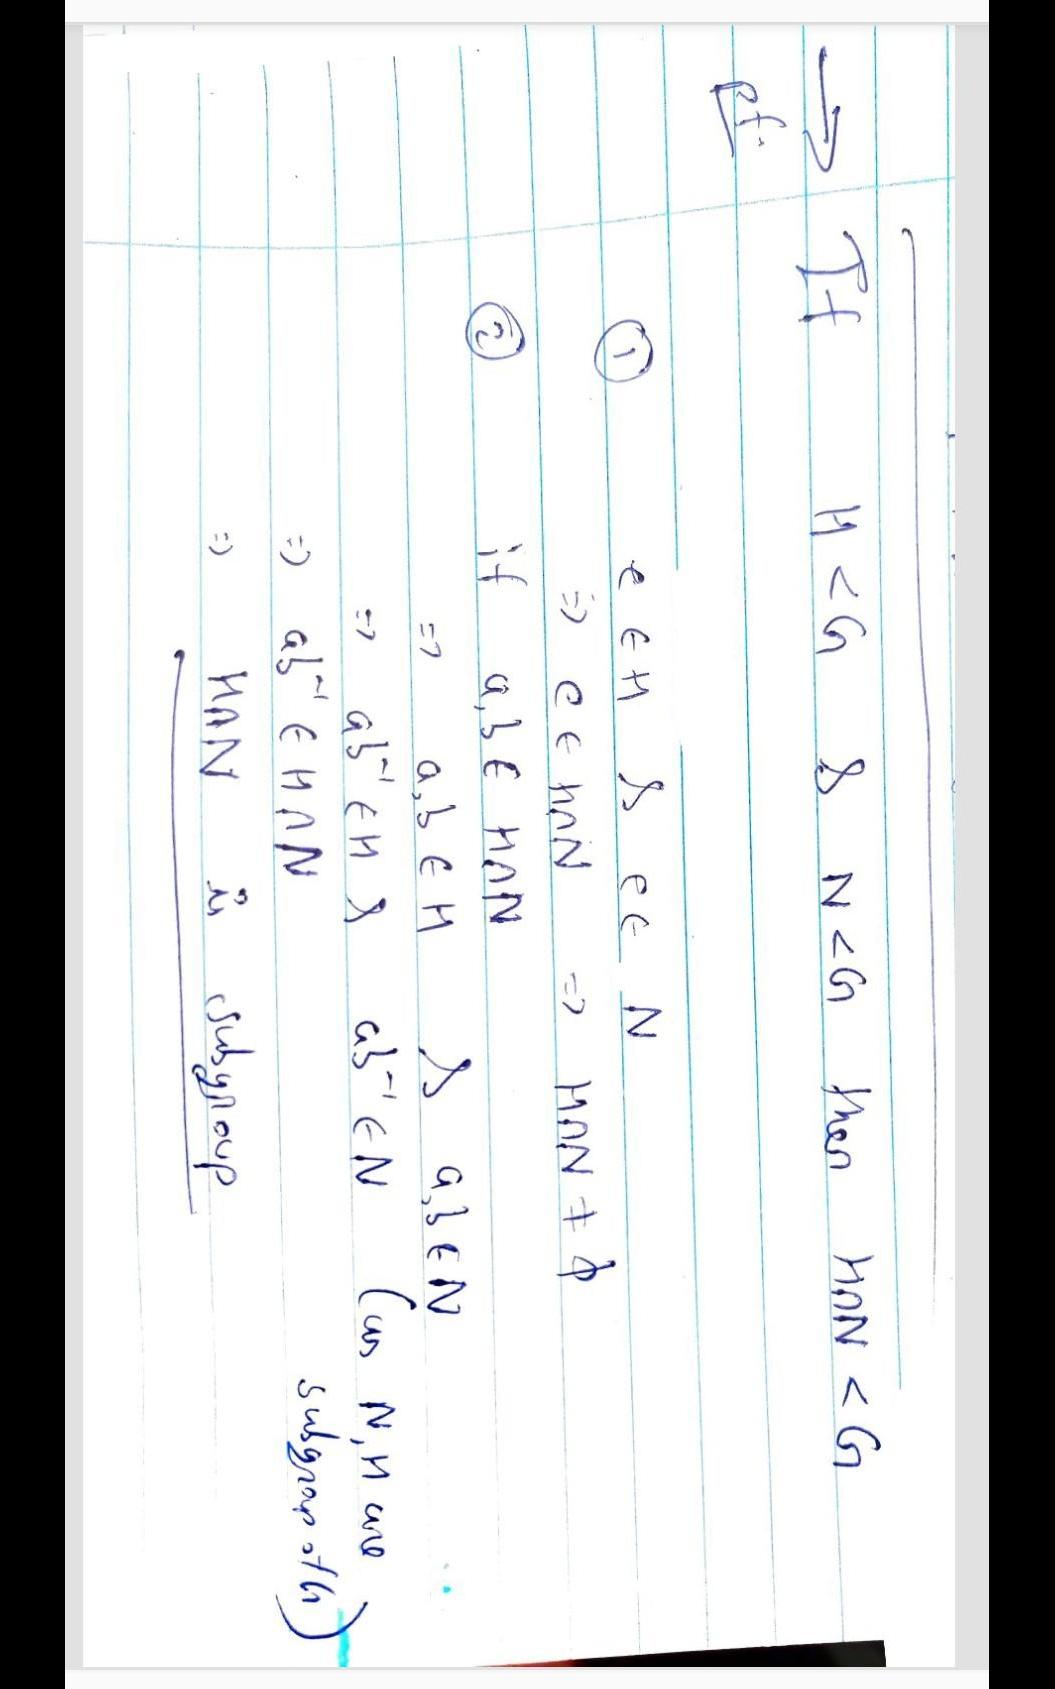 → If H < G & N < G then H∩N < G
Pf:
① e ∈ H & e ∈ N
⇒ e ∈ H∩N ⇒ H∩N ≠ ϕ
② if a,b ∈ H∩N
⇒ a,b ∈ H & a,b ∈ N
⇒ ab⁻¹ ∈ H & ab⁻¹ ∈ N (as N,H are
subgroup of G)
⇒ ab⁻¹ ∈ H∩N
⇒ H∩N is subgroup